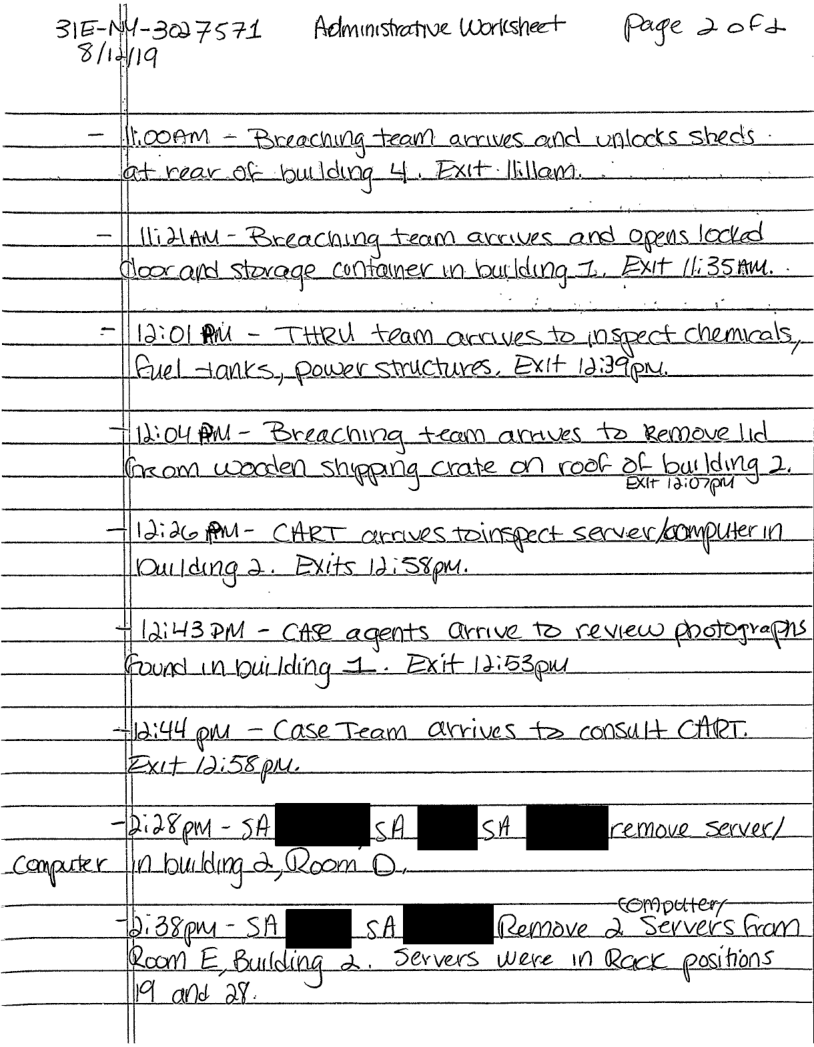 31E-NY-3027571 Administrative Worksheet Page 2 of 2
8/12/19
- 11:00AM - Breaching team arrives and unlocks sheds
at rear of building 4. Exit 11:11am.
- 11:21AM - Breaching team arrives and opens locked
door and storage container in building 1. Exit 11:35AM.
- 12:01 PM - THRU team arrives to inspect chemicals,
fuel tanks, power structures. Exit 12:39pm.
- 12:04 PM - Breaching team arrives to Remove lid
from wooden shipping crate on roof of building 2.
Exit 12:07pm
- 12:26 PM - CART arrives to inspect server/computer in
building 2. Exits 12:58pm.
- 12:43 PM - CASE agents arrive to review photographs
found in building 1. Exit 12:53pm
- 12:44 pm - Case Team arrives to consult CART.
Exit 12:58pm.
- 2:28pm - SA SA SA remove server/
computer in building 2, Room D.
computer/
- 2:38pm - SA SA Remove 2 Servers from
Room E, Building 2. Servers were in Rack positions
19 and 28.